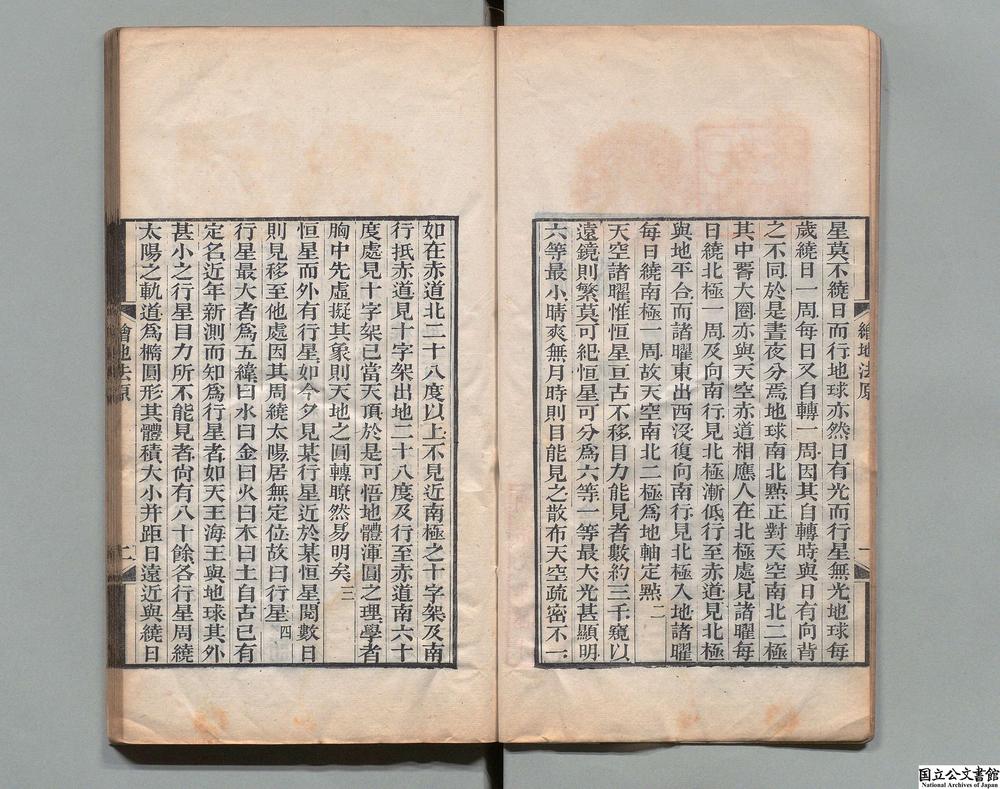 星莫不繞日而行地球亦然日有光而行星無光地球每
歲繞日一周每日又自轉一周因其自轉時與日有向背
之不同於是晝夜分焉地球南北㸃正對天空南北二極
其中㬱大圈亦與天空赤道相應人在北極處見諸曜每
日繞北極一周及向南行見北極漸低行至赤道見北極
與地平合而諸曜東出西沒復向南行見北極入地諸曜
每日繞南極一周故天空南北二極爲地軸定㸃二
天空諸曜惟恒星亘古不移目力能見者數約三千窺以
遠鏡則繁莫可紀恒星可分爲六等一等最大光甚顯明
六等最小晴爽無月時則目能見之散布天空疏密不一
繪地法原
一
如在赤道北二十八度以上不見近南極之十字架及南
行抵赤道見十字架出地二十八度及行至赤道南六十
度處見十字架已當天頂於是可悟地體渾圓之理學者
胸中先虛擬其象則天地之圓轉瞭然易明矣三
恒星而外有行星如今夕見某行星近於某恒星閱數日
則見移至他處因其周繞太陽居無定位故曰行星四
行星最大者爲五緯曰水曰金曰火曰木曰土自古已有
定名近年新測而知爲行星者如天王海王與地球其外
甚小之行星目力所不能見者尙有八十餘各行星周繞
太陽之軌道爲橢圓形其體積大小并距日遠近與繞日
繪地法原
二
国立公文書館
National Archives of Japan